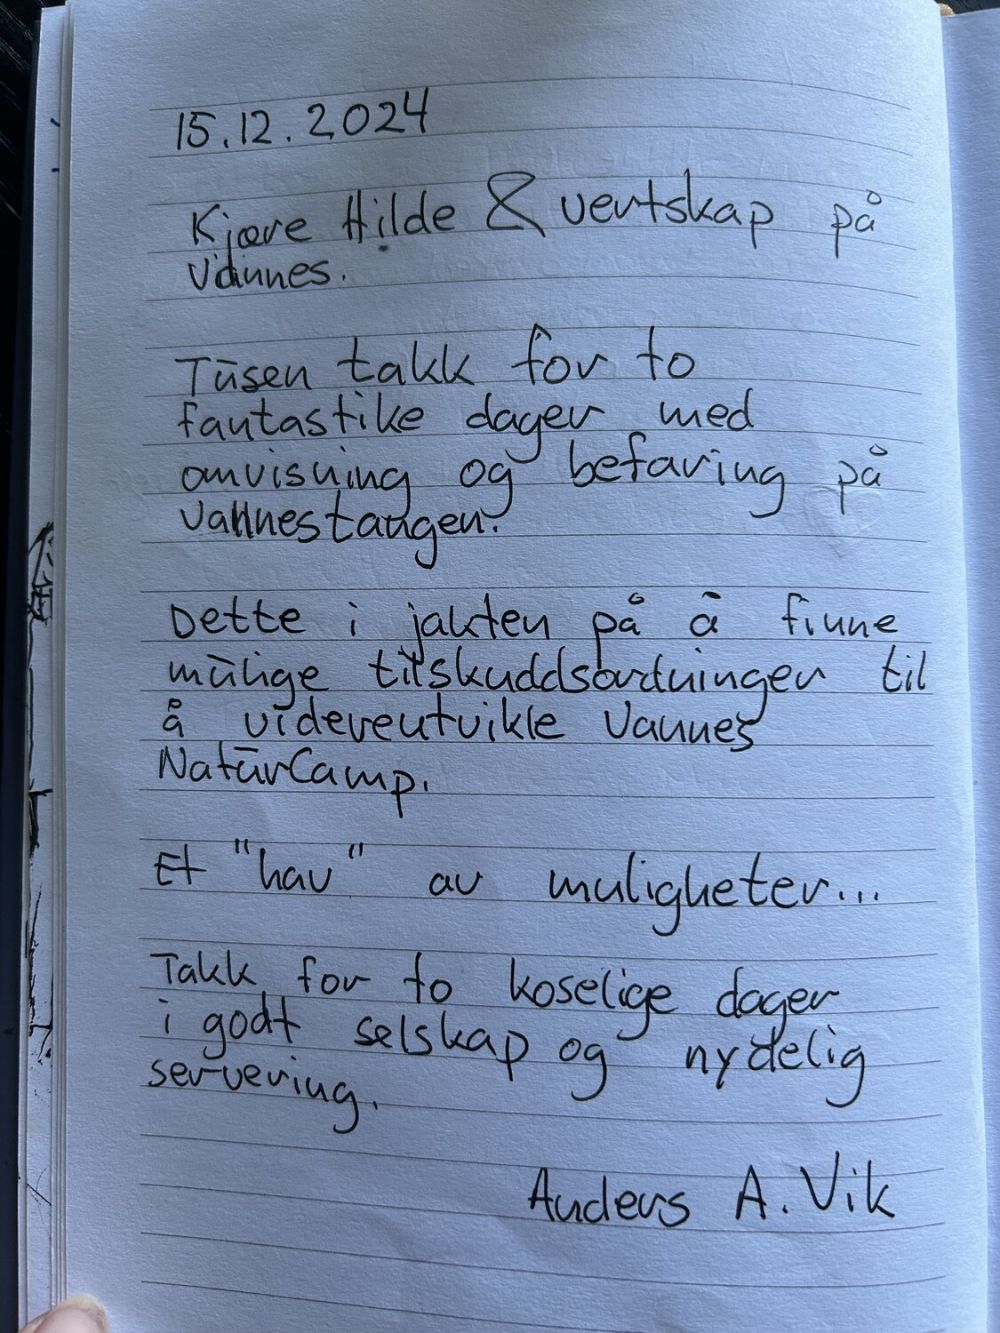 15.12.2024
Kjære Hilde & vertskap på
Vannes.
Tusen takk for to
fantastike dager med
omvisning og befaring på
Vannestangen.
Dette i jakten på å finne
mulige tilskuddsordninger til
å videreutvikle Vannes
NaturCamp.
Et "hav" av muligheter...
Takk for to koselige dager
i godt selskap og nydelig
servering.
Anders A. Vik